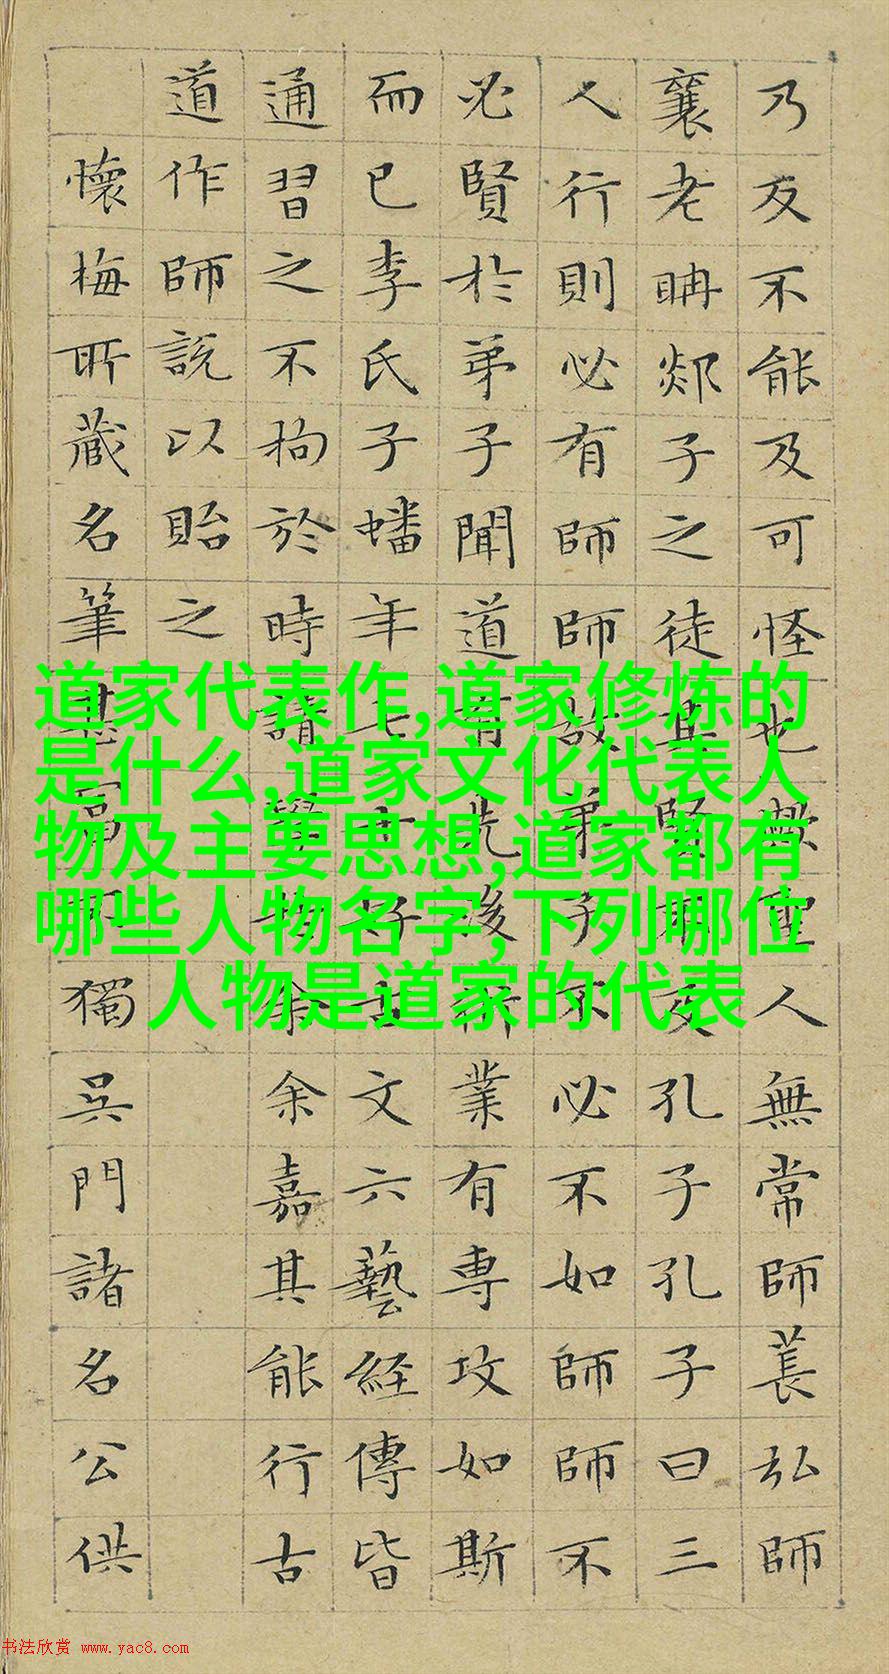 乃反不能及可怪也歟聖人無常師萇弘師
襄老聃郯子之徒其賢不及孔子孔子曰三
人行則必有師師故弟子不必不如師師不
必賢於弟子聞道有先後術業有專攻如斯
而已李氏子蟠年十七好古文六藝經傳皆
通習之不拘於時請學於余余嘉其能行古
道作師說以貽之
懷梅所藏名筆甚富不獨吳門諸名公供
道家代表作,道家修炼的
是什么,道家文化代表人
物及主要思想,道家都有
哪些人物名字,下列哪位
人物是道家的代表
书法欣赏 www.yac8.com